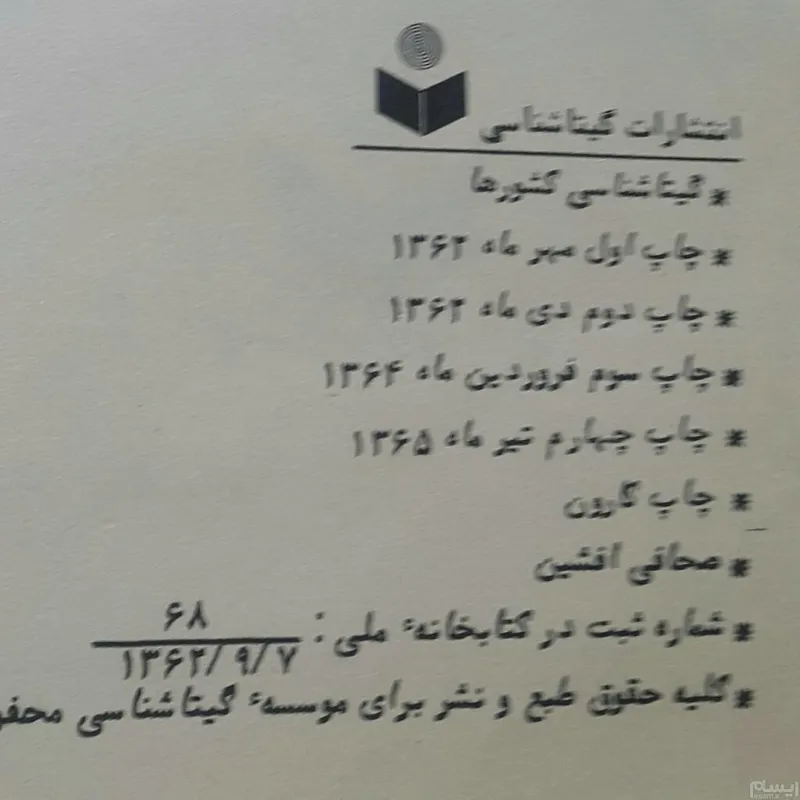 انتشارات گیتاشناسی
* گیتاشناسی کشورها
* چاپ اول مهر ماه ۱۳۶۲
* چاپ دوم دی ماه ۱۳۶۲
* چاپ سوم فروردین ماه ۱۳۶۴
* چاپ چهارم تیر ماه ۱۳۶۵
* چاپ کارون
* صحافی افشین
* شماره ثبت در کتابخانهٔ ملی : ۶۸
۱۳۶۲/۹/۷
* کلیه حقوق طبع و نشر برای موسسهٔ گیتاشناسی
ایسام